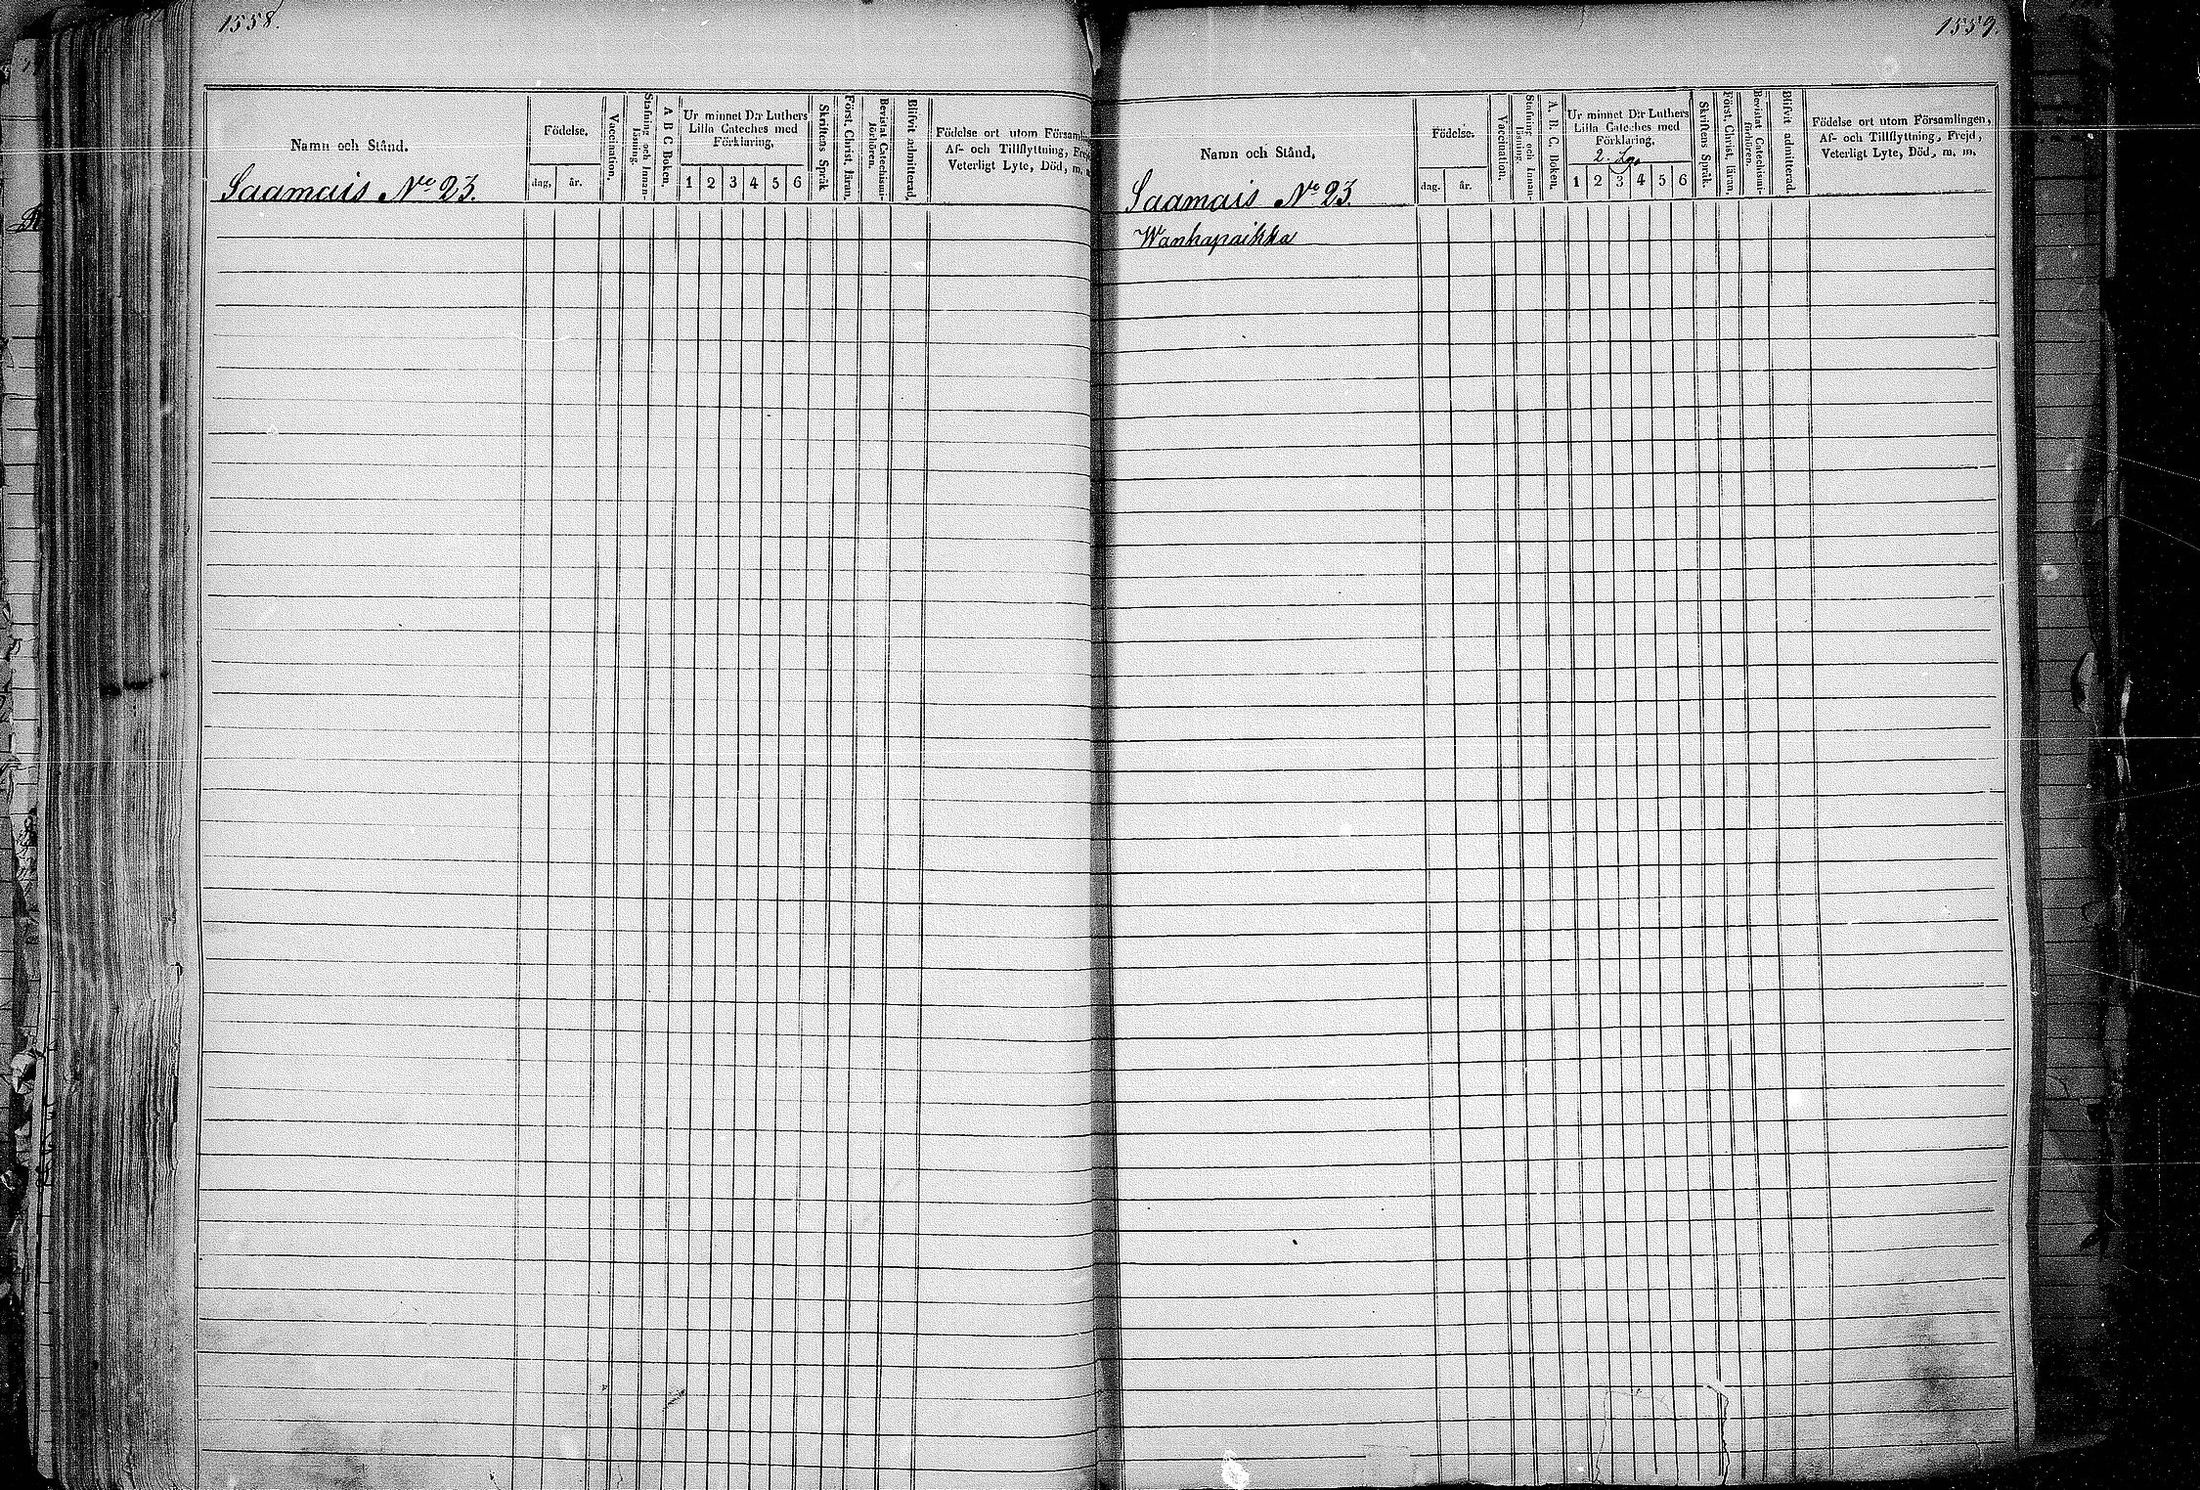 1558.
Namn och Stånd.
Födelse.
dag, år.
Vaccination.
Stafning och Innan-
läsning.
A B C Boken.
Ur minnet D:r Luthers
Lilla Cateches med
Förklaring.
1 2 3 4 5 6
Skriftens Språk
Först. Christ. läran.
Bevistat Catechismi-
förhören.
Blifvit admitterad.
Födelse ort utom Församl
Af- och Tillflyttning, Frejd
Veterligt Lyte, Död, m. m.
Saamais No 23.
1559.
Namn och Stånd.
Födelse.
dag. år.
Vaccination.
Stafning och Innan-
läsning.
A. B. C. Boken.
Ur minnet D:r Luthers
Lilla Cateches med
Förklaring.
1 2 3 4 5 6
Skriftens Språk.
Först. Christ. läran.
Bevistat Catechismi-
förhören.
Blifvit admitterad.
Födelse ort utom Församlingen,
Af- och Tillflyttning, Frejd,
Veterligt Lyte, Död, m. m.
Saamais No 23.
Wanhapaikka